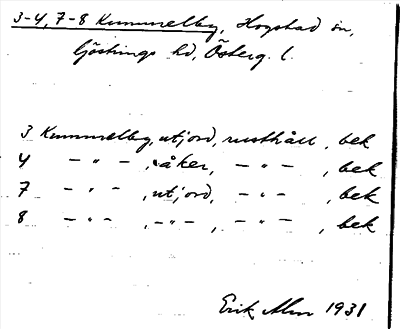 3-4, 7-8 Kummelby, Hogstad sn,
Göstrings hd, Österg. l.
3 Kummelby, utjord, rusthåll, bek
4 - " - , åker, - " - , bek
7 - " - , utjord, - " - , bek
8 - " - , - " - , - " - , bek
Erik Alm 1931